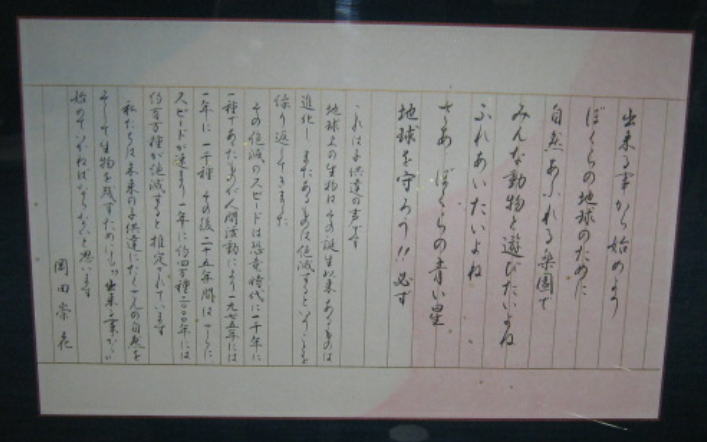 出来る事から始めよう
ぼくらの地球のために
自然あふれる楽園で
みんな動物と遊びたいよね
ふれあいたいよね
さあ ぼくらの青い星
地球を守ろう!! 必ず
これは子供達の声です
地球上の生物はその誕生以来あるものは
進化し またあるものは絶滅するということを
繰り返してきました
その絶滅のスピードは恐竜時代に一千年に
一種であったものが人間活動により一九七五年には
一年に一千種 その後二十五年間はさらに
スピードが速まり一年に約四万種二〇〇〇年には
約百万種が絶滅すると推定されています
私たちは未来の子供達にたくさんの自然を
そして生物を残すために 出来る事から
始めていかねばならないと思います
岡田崇花